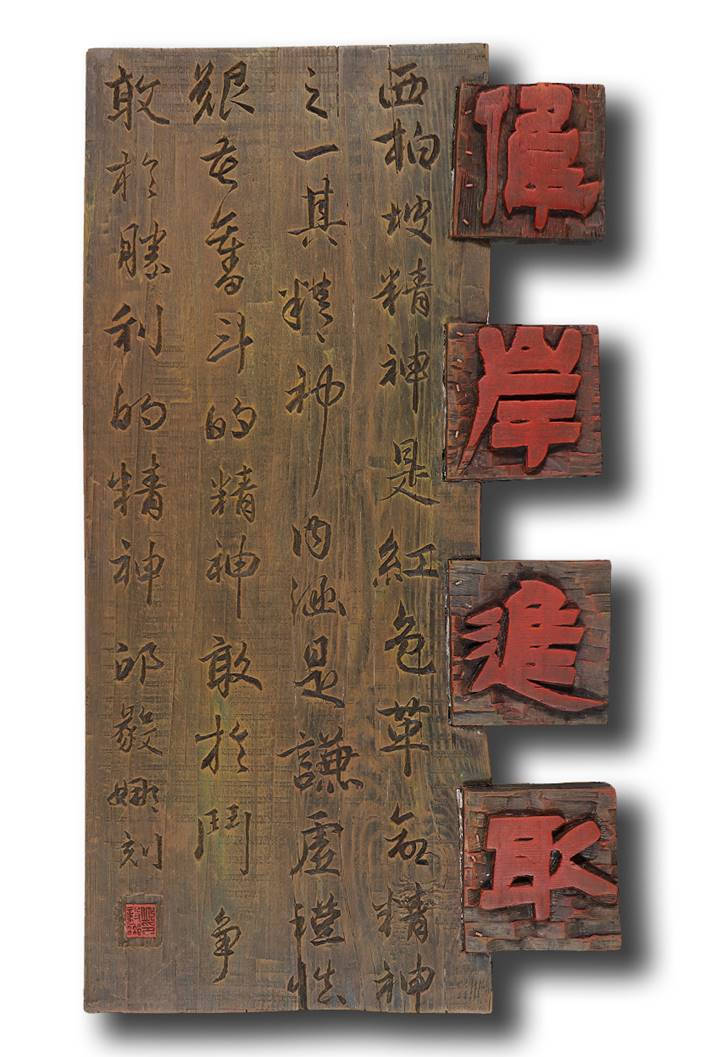 偉岸進取
西柏坡精神是紅色革命精神
之一其精神内涵是謙虛謹慎
艱苦奮斗的精神敢於鬥争
敢於勝利的精神邱娜刻